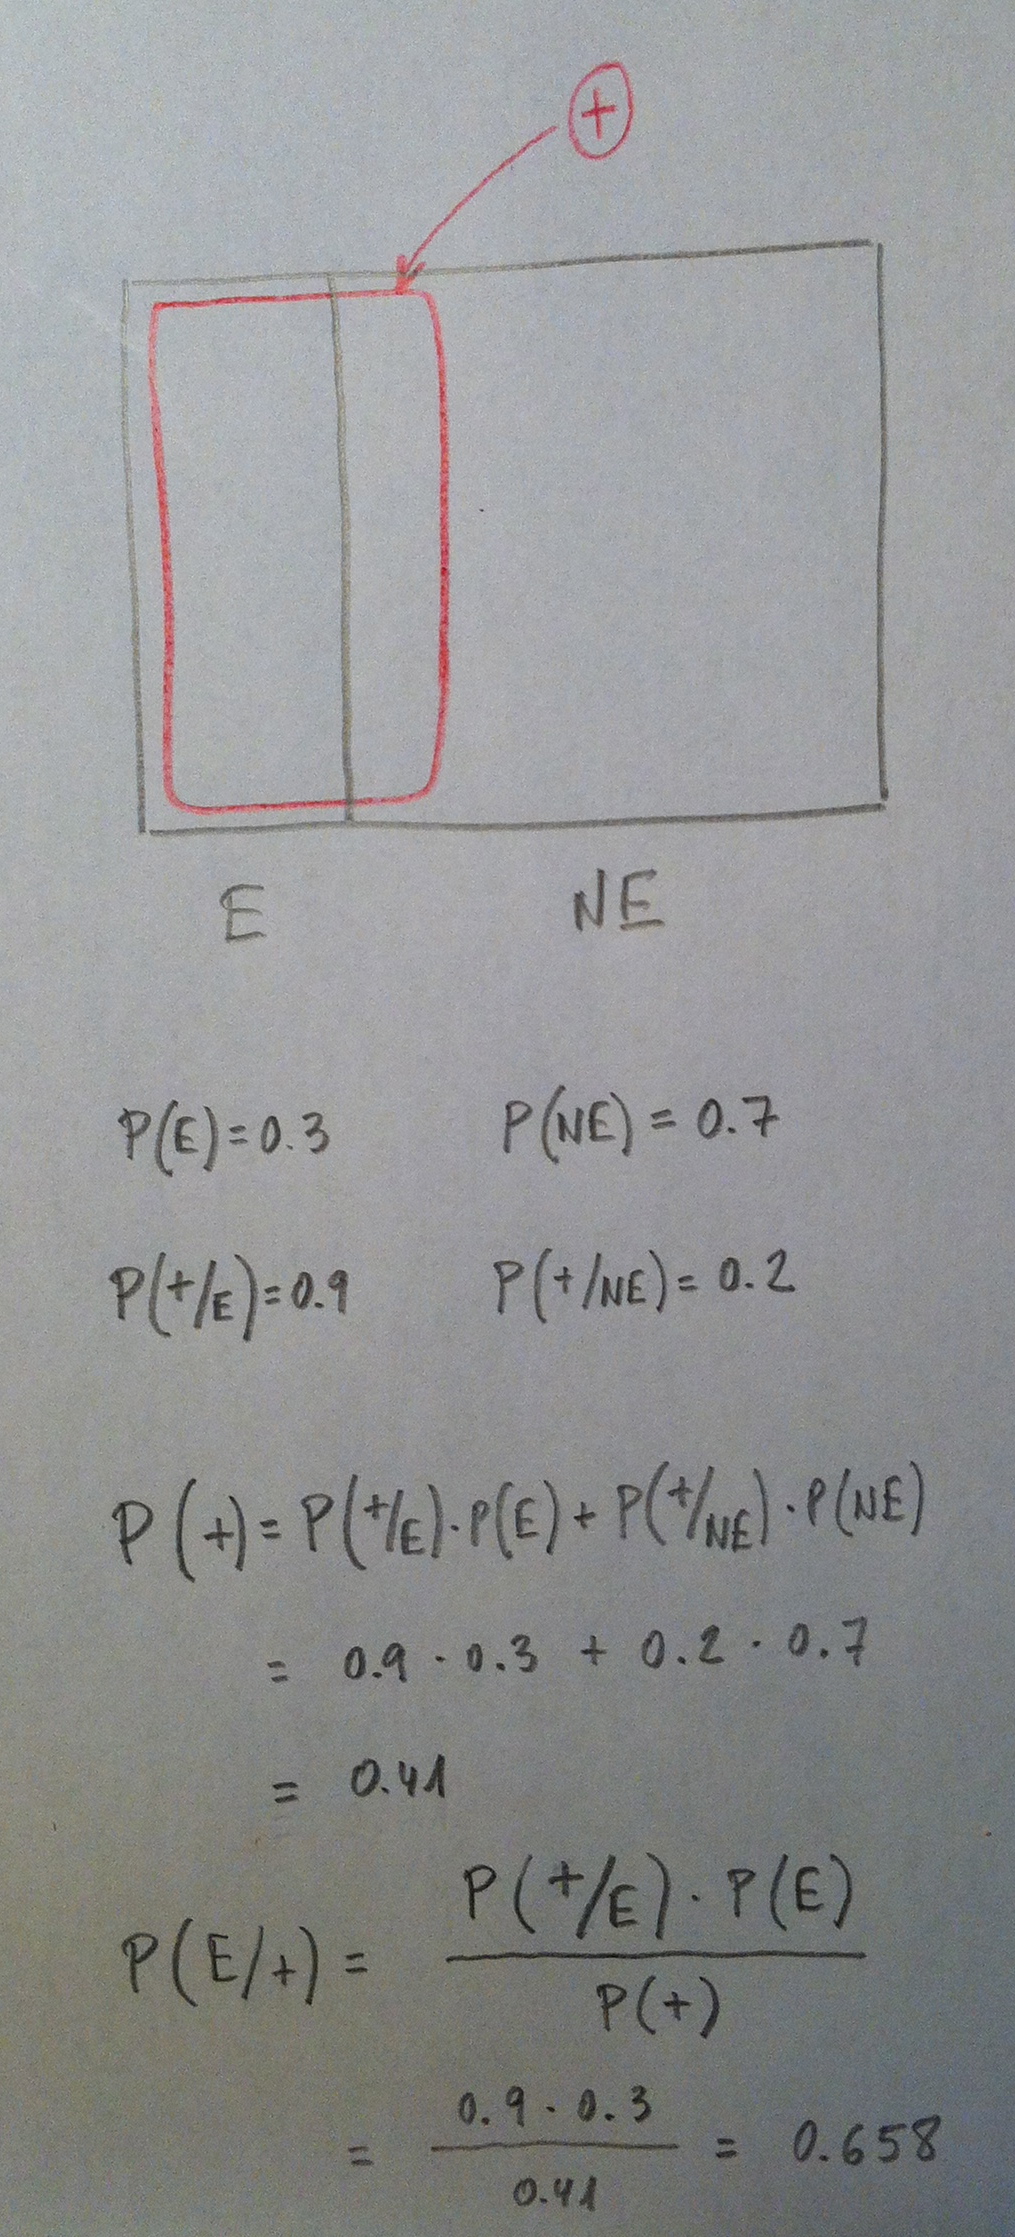 +
E NE
P(E)=0.3 P(NE) = 0.7
P(+/E)=0.9 P(+/NE)= 0.2
P(+)= P(+/E)·P(E)+ P(+/NE)·P(NE)
= 0.9 · 0.3 + 0.2 · 0.7
= 0.41
P(E/+) = P(+/E) · P(E)
P(+)
= 0.9 · 0.3 = 0.658
0.41